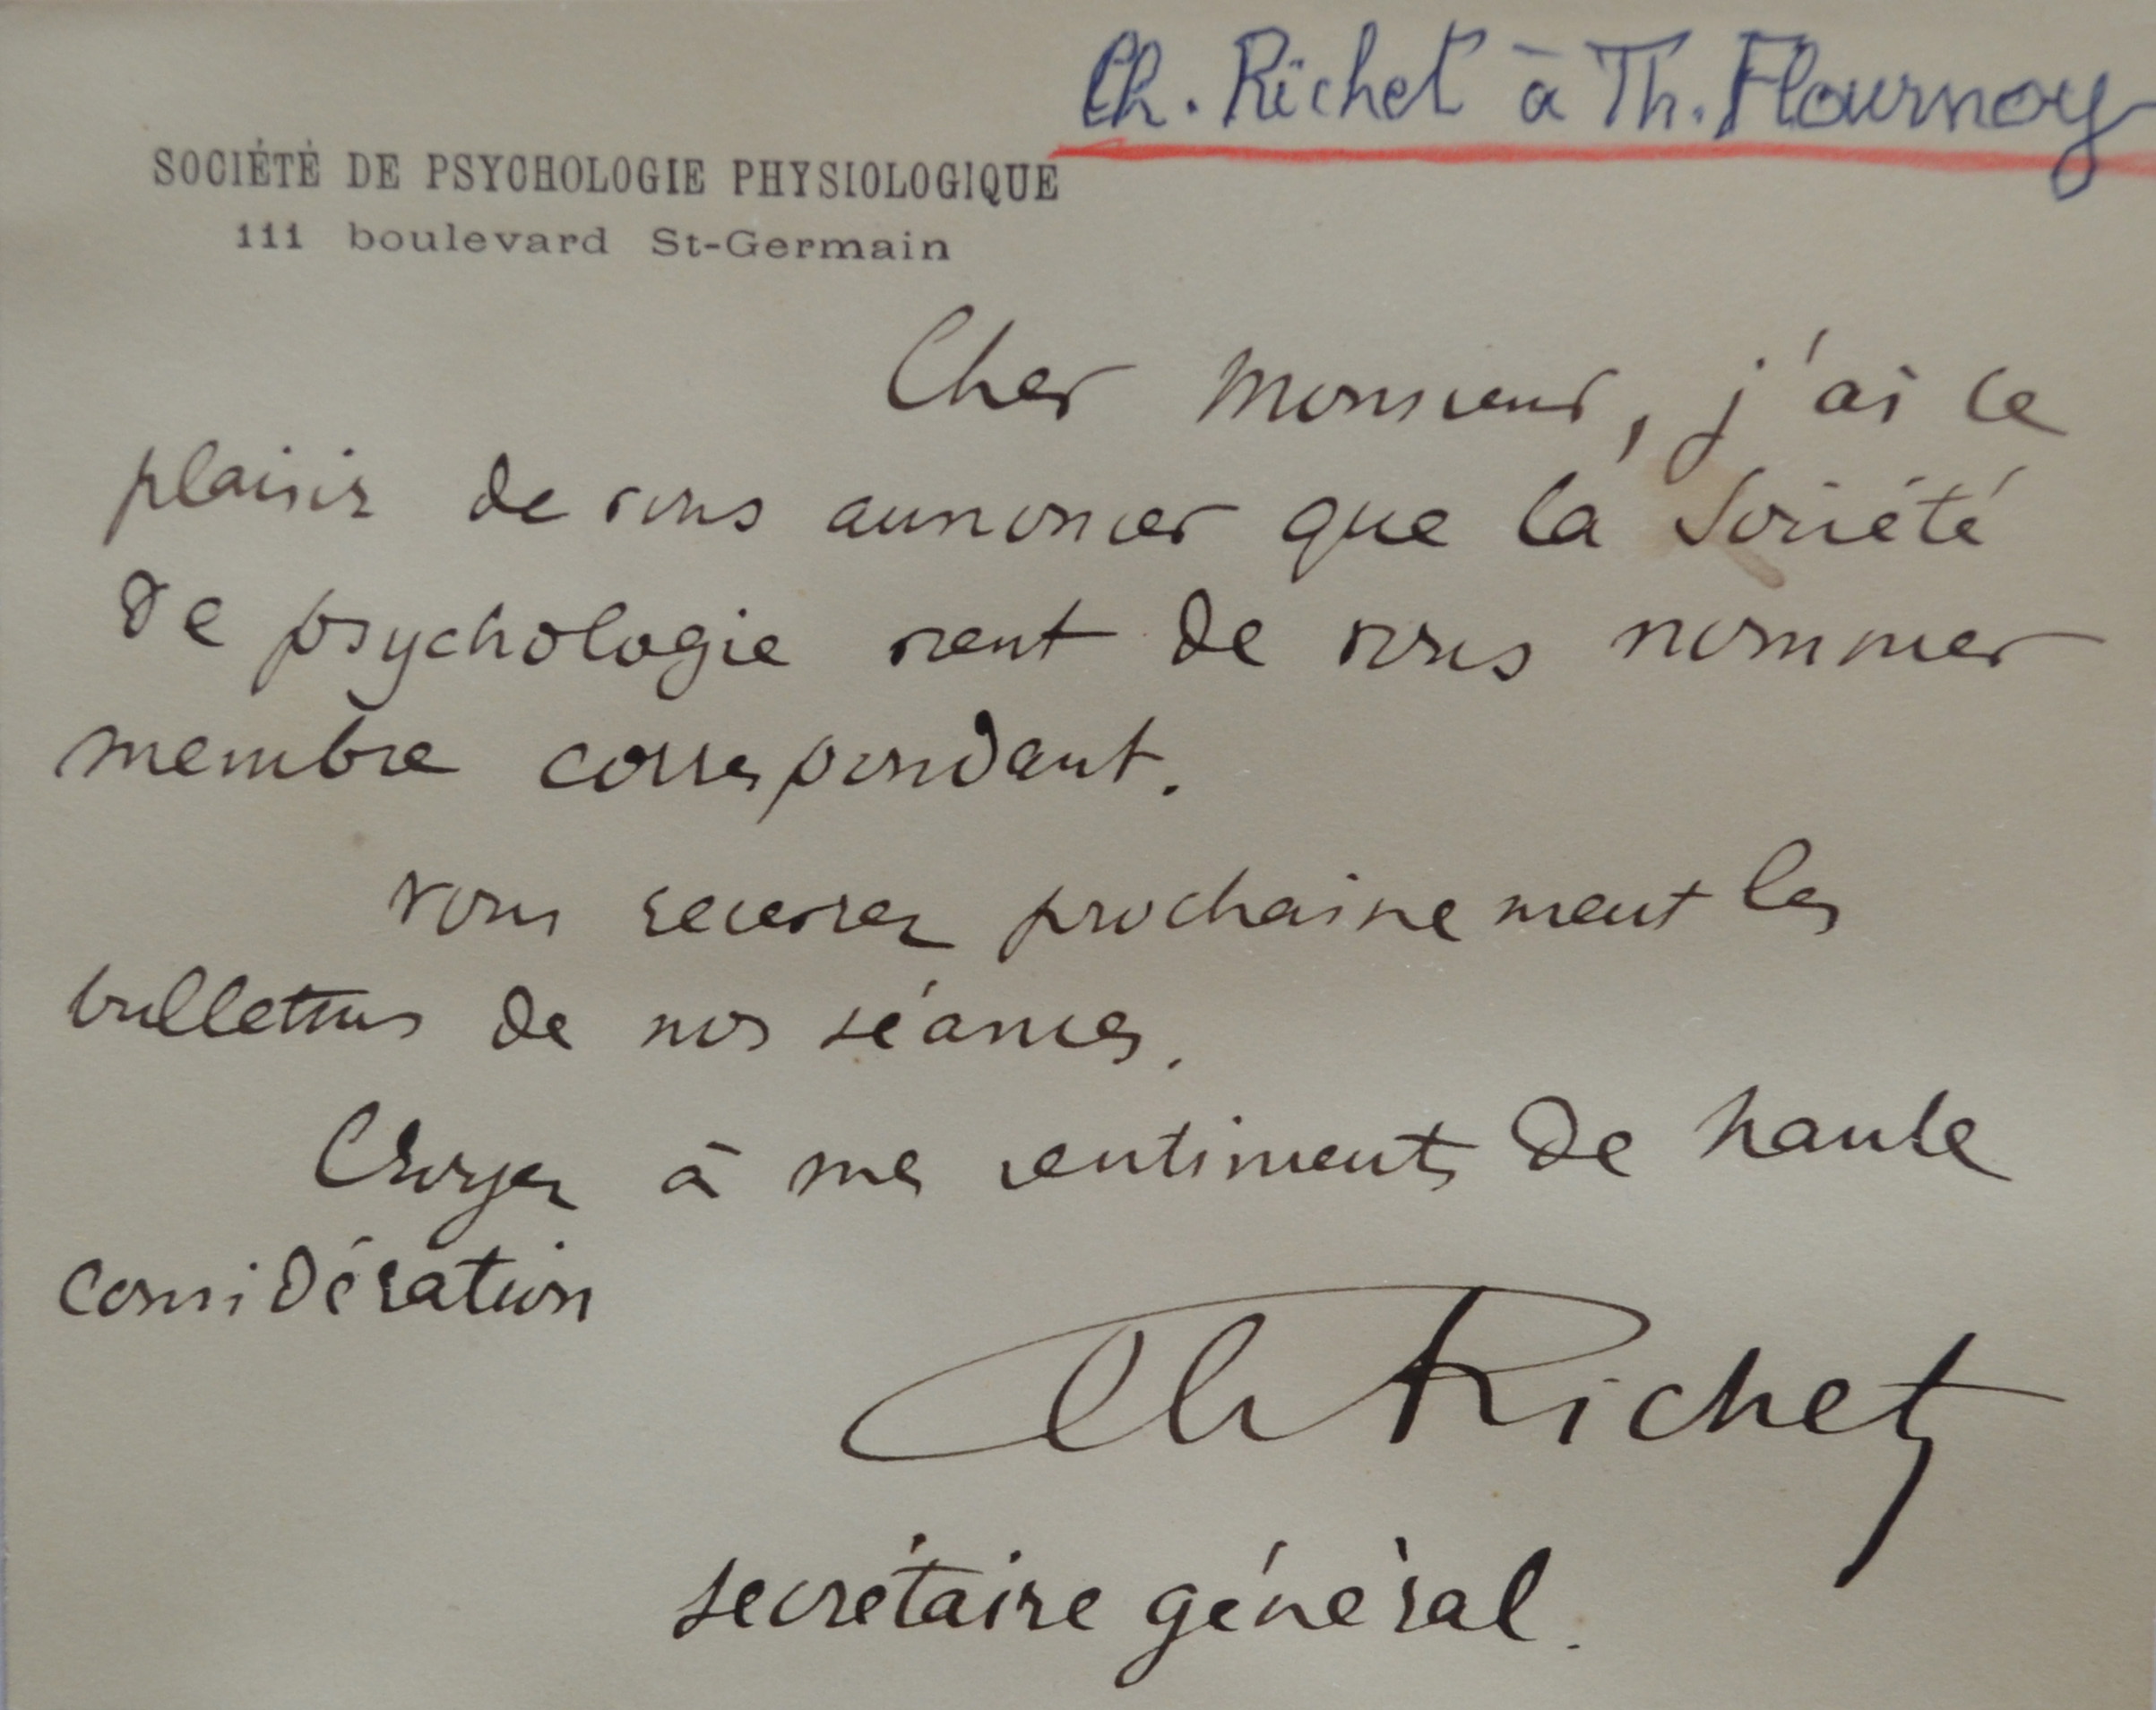 Ch. Richet à Th. Flournoy
SOCIÉTÉ DE PSYCHOLOGIE PHYSIOLOGIQUE
111 boulevard St-Germain
Cher Monsieur, j'ai le
plaisir de vous annoncer que la Société
de psychologie vient de vous nommer
membre correspondant.
Vous recevrez prochainement les
bulletins de nos séances.
Croyez à mes sentiments de haute
considération
Ch Richet
secrétaire général.